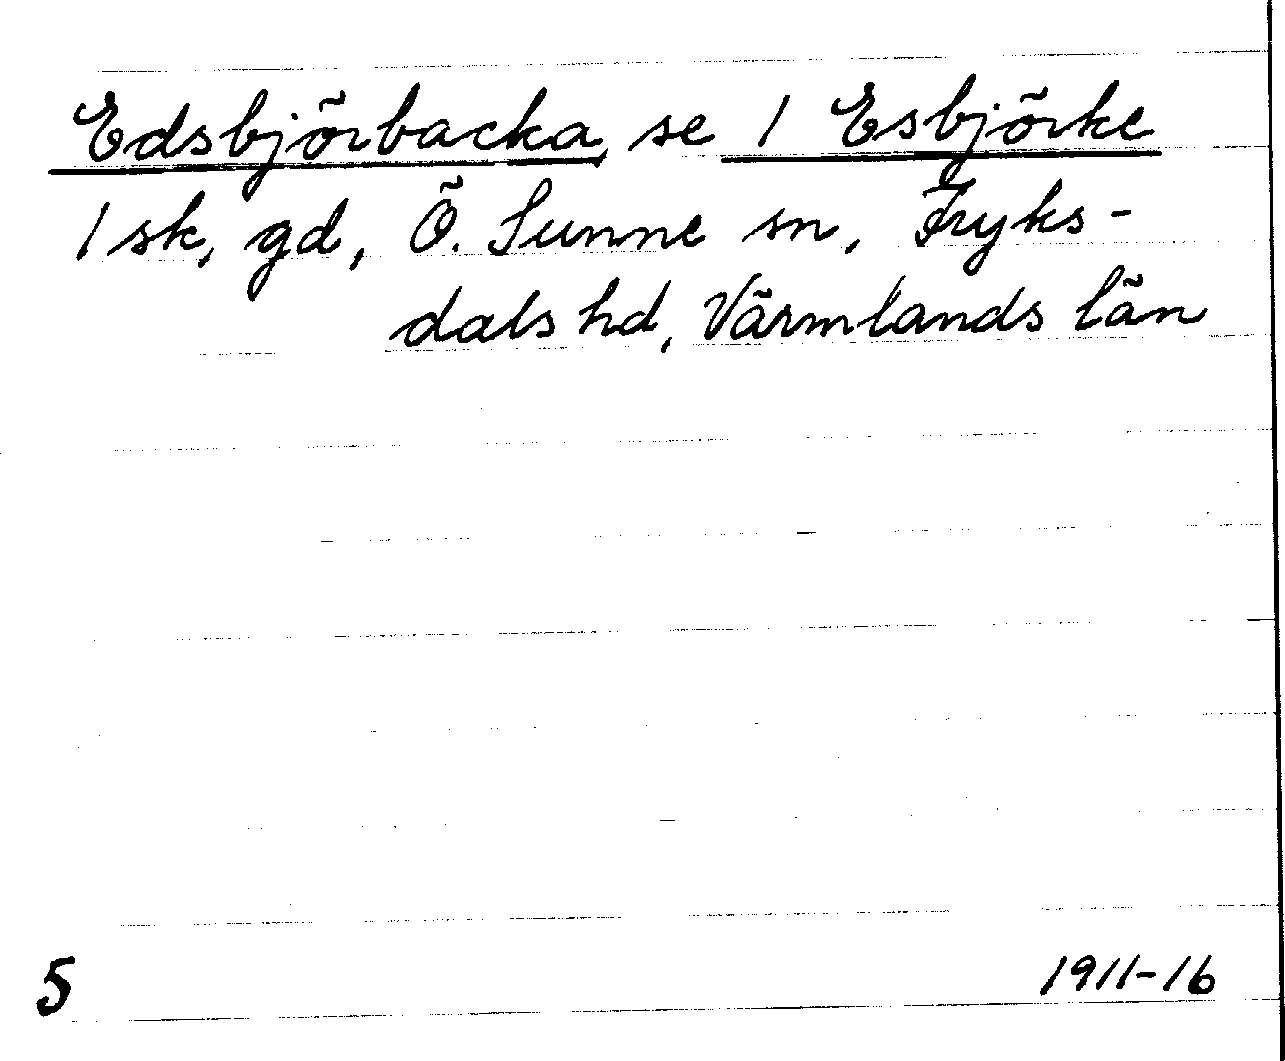 Edsbjörbacka, se 1 Esbjörke
1 sk, gd, Ö. Sunne sn, Fryks-
dals hd, Värmlands län
5
1911-16